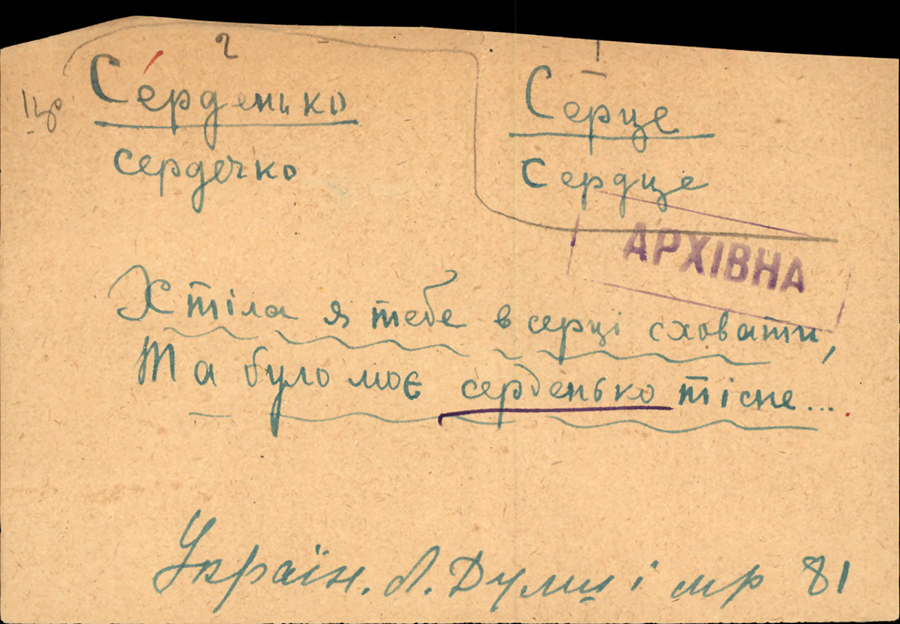 2
Се́рденько
сердечко
1
Серце
сердце
АРХІВНА
Хтіла я тебе в серці сховати,
Та було моє серденько тісне...
Україн. Л. Думи і мр 81